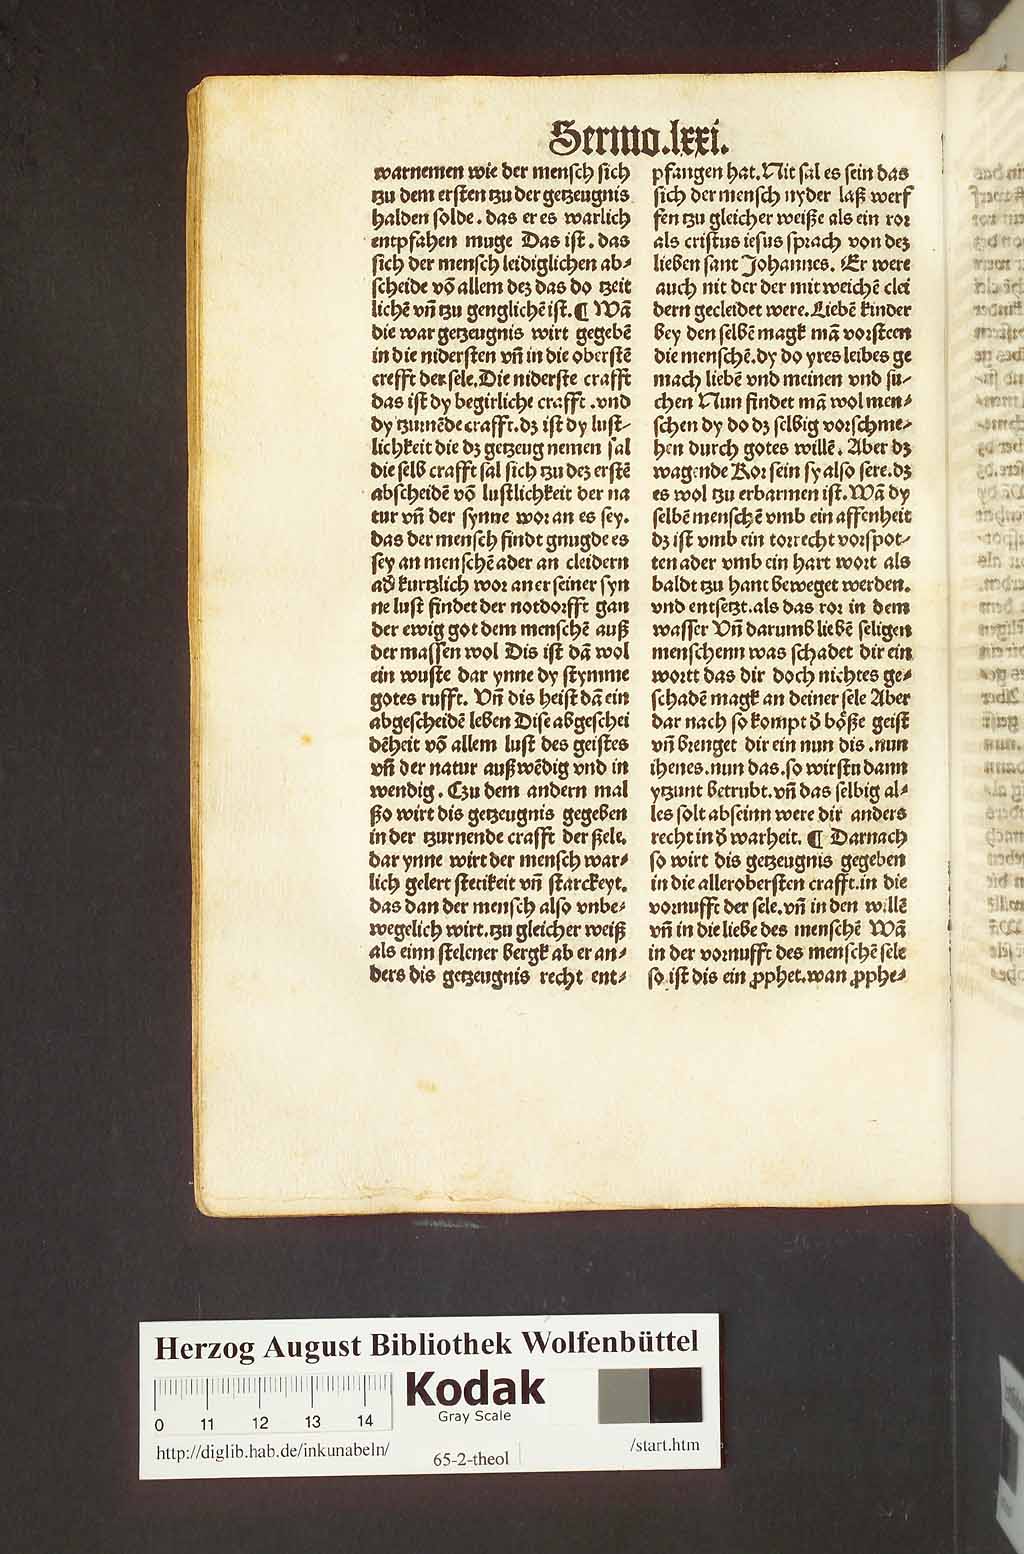 Sermo.lxxi.
warnemen wie der mensch sich
tzu dem ersten tzu der getzeugnis
halden solde. das er es warlich
entpfahen muge Das ist. das
sich der mensch leidiglichen ab⸗
scheide vō allem dez das do tzeit
lichē vn̄ tzu genglichē ist. ¶ Wā
die war getzeugnis wirt gegebē
in die nidersten vn̄ in die oberstē
crefft der sele. Die niderste crafft
das ist dy begirliche crafft .vnd
dy tzurnēde crafft. dz ist dy lust⸗
lichkeit die dz getzeug nemen sal
die selb crafft sal sich tzu dez erstē
abscheidē vō lustlichkeit der na
tur vn̄ der synne wor an es sey.
das der mensch findt gnugde es
sey an menschē ader an cleidern
ad̄ kurtzlich wor an er seiner syn
ne lust findet der notdorfft gan
der ewig got dem menschē auß
der massen wol Dis ist dā wol
ein wuste dar ynne dy stymme
gotes rufft. Vn̄ dis heist dā ein
abgescheidē leben Dise abgeschei
dēheit vō allem lust des geistes
vn̄ der natur außwēdig vnd in
wendig. Czu dem andern mal
ßo wirt dis getzeugnis gegeben
in der tzurnende crafft der ßele.
dar ynne wirt der mensch war⸗
lich gelert stetikeit vn̄ starckeyt.
das dan der mensch also vnbe⸗
wegelich wirt. tzu gleicher weiß
als einn stelener bergk ab er an⸗
ders dis getzeugnis recht ent⸗
pfangen hat. Nit sal es sein das
sich der mensch nyder laß werf
fen tzu gleicher weiße als ein ror
als cristus iesus sprach von dez
lieben sant Johannes. Er were
auch nit der der mit weichē clei
dern gecleidet were. Liebē kinder
bey den selbē magk mā vorsteen
die menschē. dy do yres leibes ge
mach liebē vnd meinen vnd su⸗
chen Nun findet mā wol men⸗
schen dy do dz selbig vorschme⸗
hen durch gotes willē. Aber dz
wagende Ror sein sy also sere. dz
es wol tzu erbarmen ist. Wā dy
selbē menschē vmb ein affenheit
dz ist vmb ein torrecht vorspot⸗
ten ader vmb ein hart wort als
baldt tzu hant beweget werden.
vnd entsetzt. als das ror in dem
wasser Vn̄ darumb liebē seligen
menschenn was schadet dir ein
wortt das dir doch nichtes ge⸗
schadē magk an deiner sele Aber
dar nach so kompt d̄ böße geist
vn̄ brenget dir ein nun dis .nun
ihenes. nun das. so wirstu dann
ytzunt betrubt. vn̄ das selbig al⸗
les solt abseinn were dir anders
recht in d̄ warheit. ¶ Darnach
so wirt dis getzeugnis gegeben
in die allerobersten crafft. in die
vornufft der sele. vn̄ in den willē
vn̄ in die liebe des menschē Wā
in der vornufft des menschē sele
so ist dis ein ꝓphet. wan ꝓphe⸗
Herzog August Bibliothek Wolfenbüttel
Kodak
Gray Scale
0 11 12 13 14
http://diglib.hab.de/inkunabeln/
65-2-theol
/start.htm